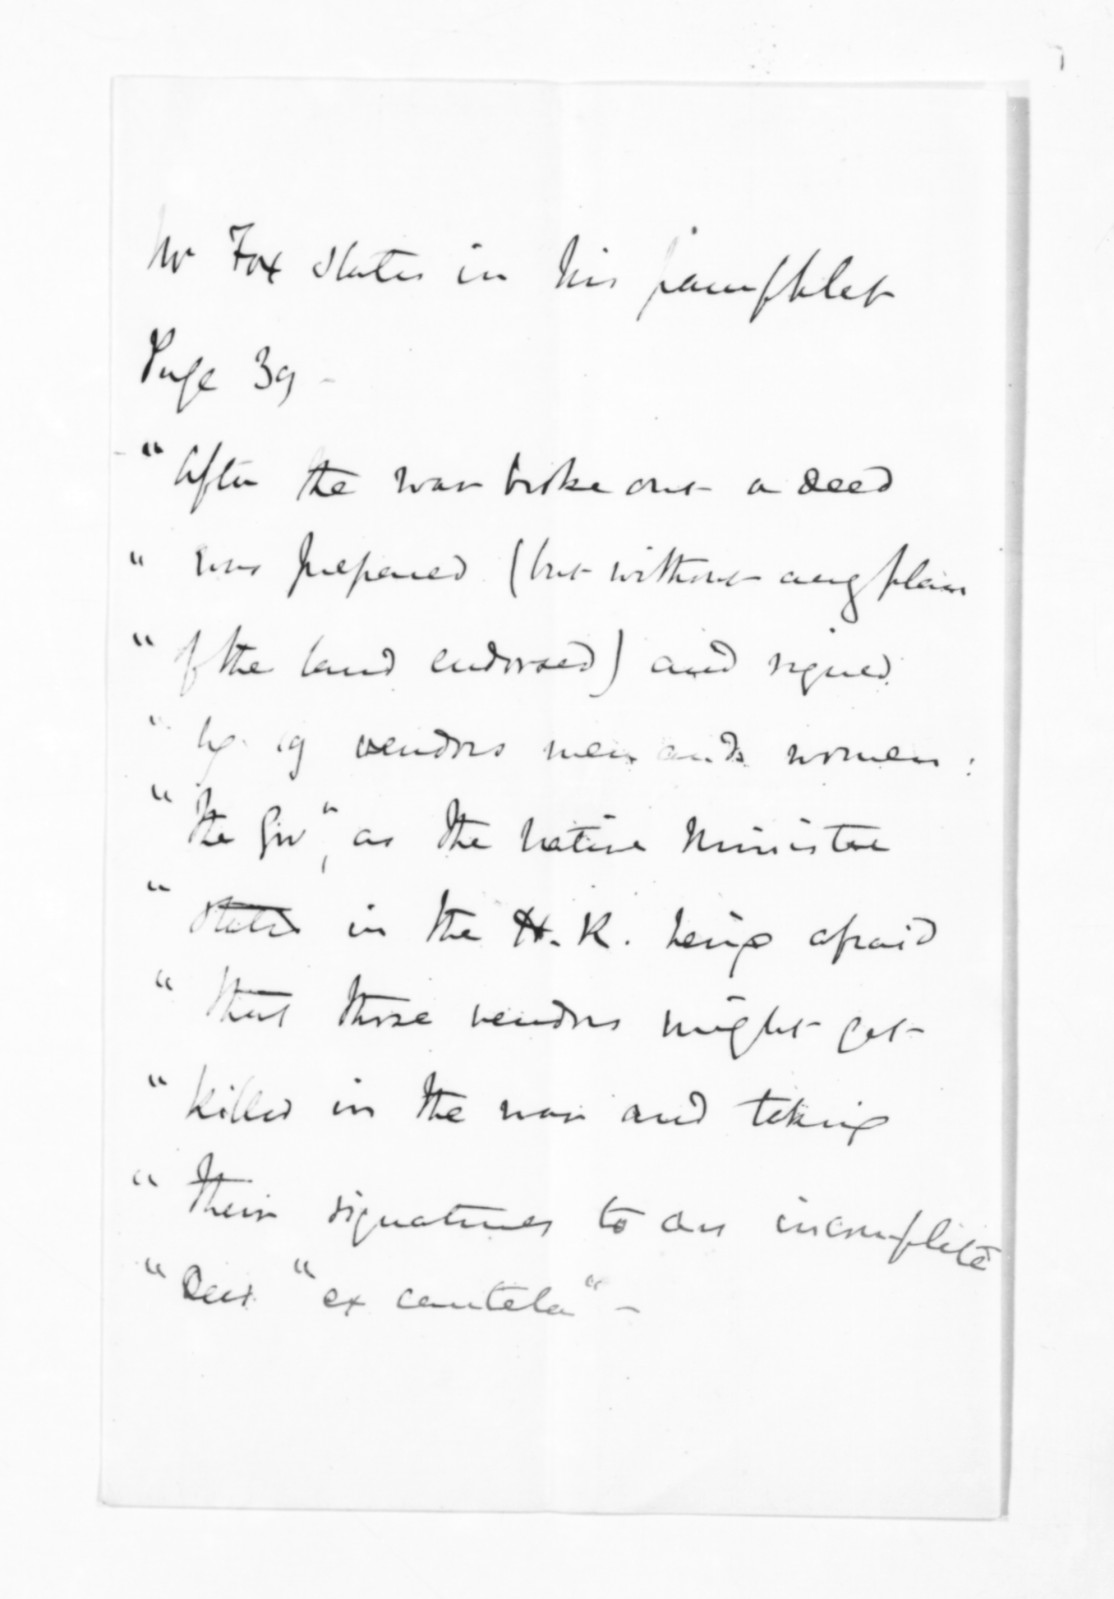 Mr Fox states in his pamphlet
Page 39 -
" After the war broke out a deed
" was prepared (but without any plan
" of the land endorsed) and signed
" by 19 vendors men and women :
" the Gov", as the native Minister
" stated in the H.R. being afraid
" that those vendors might get
" killed in the war and taking
" their signatures to an incomplete
" Deed "ex cautela" -